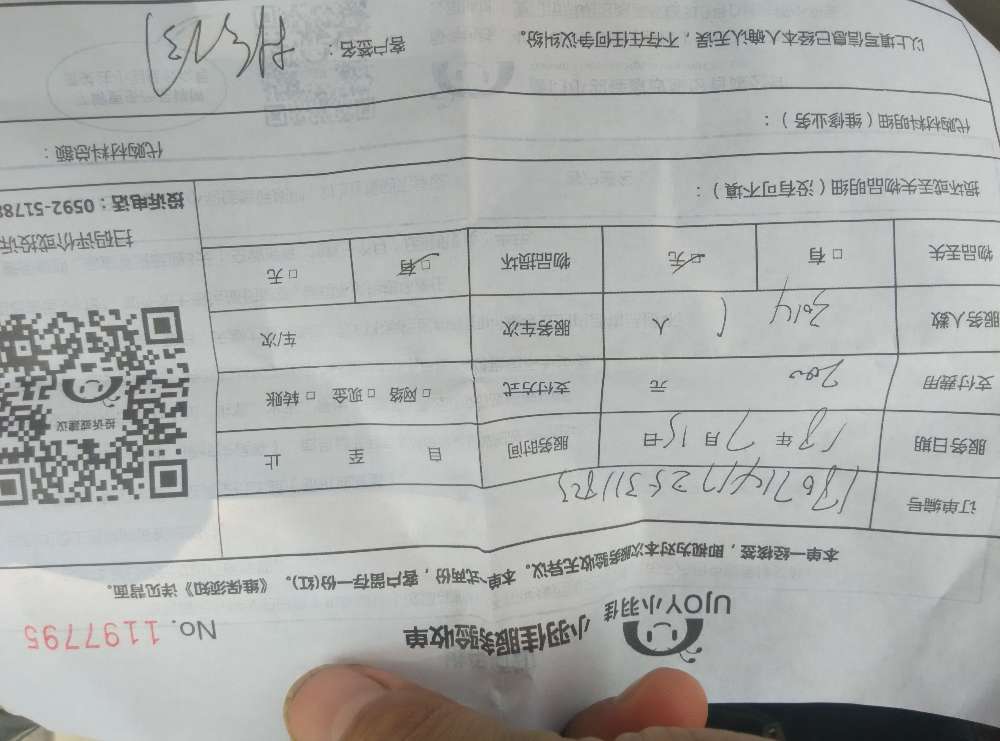 UJOY小羽佳
小羽佳服务验收单
No. 1197795
本单一经核签，即视为对本次服务验收无异议。本单一式两份，客户留存一份(红)。《维保须知》详见背面。
订单编号
服务日期 18 年 7 月 15 日 服务时间 自 至 止
支付费用 200 元 支付方式 □ 网络 □ 现金 □ 转账
服务人数 人 服务车次 车/次
物品丢失 □ 有 □ 无 物品损坏 □ 有 □ 无
投诉或建议
扫码评价或投诉
投诉电话：0592-5178
损坏或丢失物品明细（没有可不填）：
代购材料明细（维修业务）： 代购材料总额：
以上填写信息已经本人确认无误，不存在任何争议纠纷。 客户签名：